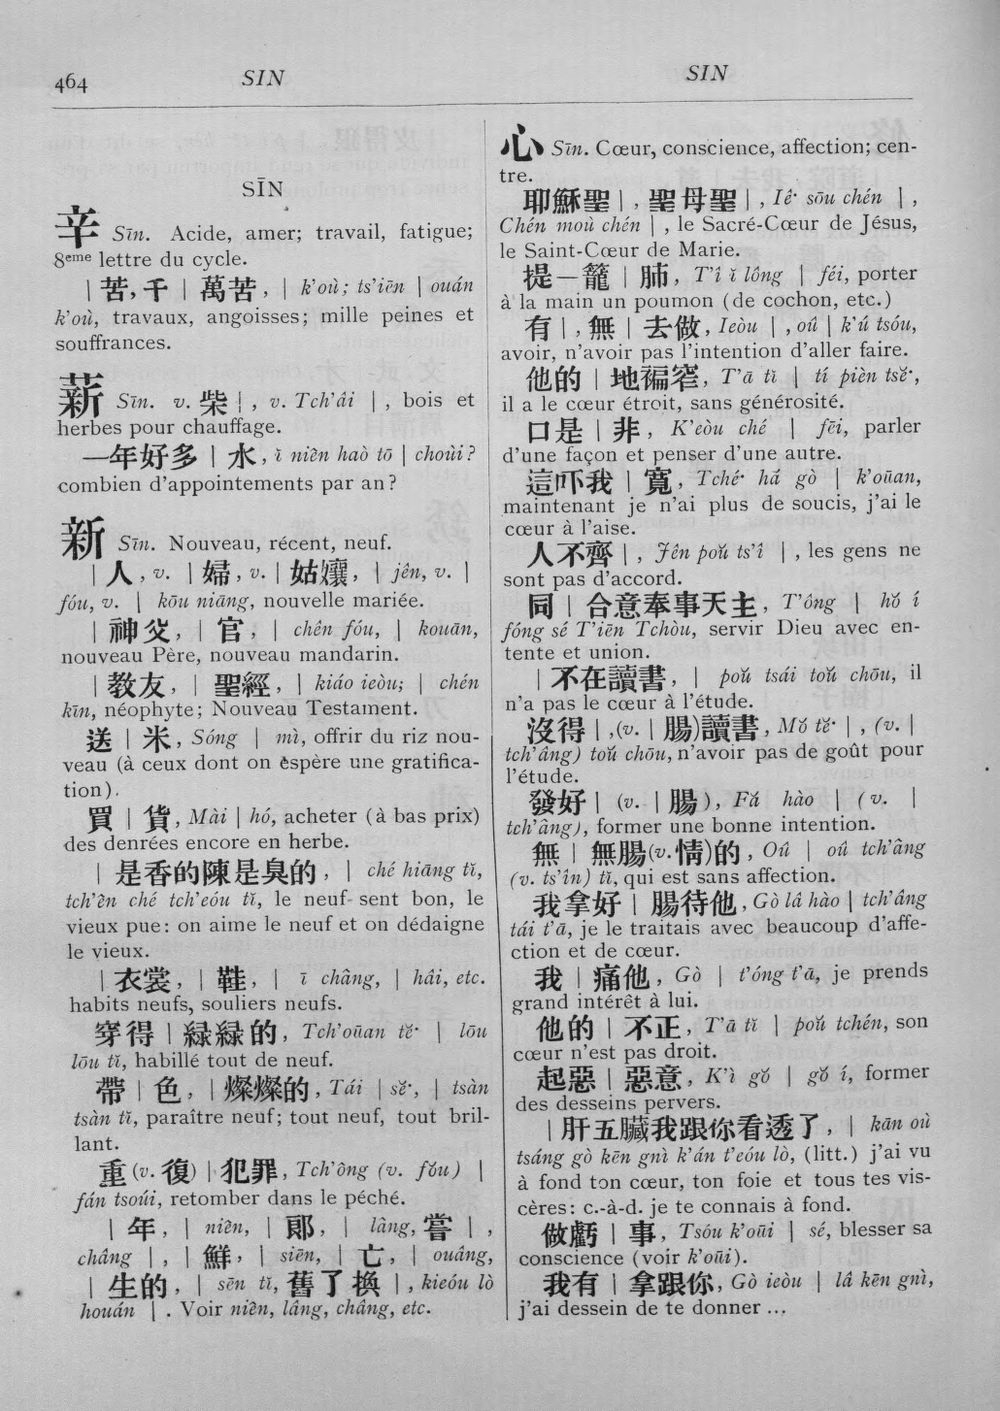 464
SIN
SIN
SĪN
辛 Sīn. Acide, amer; travail, fatigue;
8eme lettre du cycle.
| 苦, 千 | 萬苦, | k'où; ts'iēn | ouán
k'où, travaux, angoisses; mille peines et
souffrances.
薪 Sīn. v. 柴 |, v. Tch'âi |, bois et
herbes pour chauffage.
一年好多 | 水, ĭ niên haò tō | choùi?
combien d'appointements par an?
新 Sīn. Nouveau, récent, neuf.
| 人, v. | 婦, v. | 姑孃, | jên, v. |
fóu, v. | kōu niāng, nouvelle mariée.
| 神父, | 官, | chên fóu, | kouān,
nouveau Père, nouveau mandarin.
| 教友, | 聖經, | kiáo ieòu; | chén
kīn, néophyte; Nouveau Testament.
送 | 米, Sóng | mì, offrir du riz nou-
veau (à ceux dont on espère une gratifica-
tion).
買 | 貨, Mài | hó, acheter (à bas prix)
des denrées encore en herbe.
| 是香的陳是臭的, | ché hiāng tĭ,
tch'ên ché tch'eóu tĭ, le neuf sent bon, le
vieux pue: on aime le neuf et on dédaigne
le vieux.
| 衣裳, | 鞋, | ī châng, | hâi, etc.
habits neufs, souliers neufs.
穿得 | 綠綠的, Tch'oūan tĕ· | lōu
lōu tĭ, habillé tout de neuf.
帶 | 色, | 燦燦的, Tái | sĕ·, | tsàn
tsàn tĭ, paraître neuf; tout neuf, tout bril-
lant.
重 (v. 復) | 犯罪, Tch'ông (v. fŏu) |
fán tsoúi, retomber dans le péché.
| 年, | niên, | 郎, | lâng, 嘗 |,
châng |, | 鮮, | siēn, | 亡, | ouâng,
| 生的, | sēn tĭ, 舊了換 |, kieóu lò
houán |. Voir niên, lâng, châng, etc.
心 Sīn. Cœur, conscience, affection; cen-
tre.
耶穌聖 |, 聖母聖 |, Iê· sōu chén |,
Chén moù chén |, le Sacré-Cœur de Jésus,
le Saint-Cœur de Marie.
提一籠 | 肺, T'î ĭ lông | féi, porter
à la main un poumon (de cochon, etc.)
有 |, 無 | 去做, Ieòu |, oû | k'ú tsóu,
avoir, n'avoir pas l'intention d'aller faire.
他的 | 地褊窄, T'ā tĭ | tí pièn tsĕ·,
il a le cœur étroit, sans générosité.
口是 | 非, K'eòu ché | fēi, parler
d'une façon et penser d'une autre.
這吓我 | 寬, Tché· há gò | k'oūan,
maintenant je n'ai plus de soucis, j'ai le
cœur à l'aise.
人不齊 |, Jên poŭ ts'î |, les gens ne
sont pas d'accord.
同 | 合意奉事天主, T'ông | hŏ í
fóng sé T'iēn Tchòu, servir Dieu avec en-
tente et union.
| 不在讀書, | poŭ tsái toŭ chōu, il
n'a pas le cœur à l'étude.
沒得 |, (v. | 腸) 讀書, Mŏ tĕ· |, (v. |
tch'âng) toŭ chōu, n'avoir pas de goût pour
l'étude.
發好 | (v. | 腸), Fă hào | (v. |
tch'âng), former une bonne intention.
無 | 無腸 (v. 情) 的, Oû | oû tch'âng
(v. ts'în) tĭ, qui est sans affection.
我拿好 | 腸待他, Gò lâ hào | tch'âng
tái t'ā, je le traitais avec beaucoup d'affe-
ction et de cœur.
我 | 痛他, Gò | t'óng t'ā, je prends
grand intérêt à lui.
他的 | 不正, T'ā tĭ | poŭ tchén, son
cœur n'est pas droit.
起惡 | 惡意, K'ì gŏ | gŏ í, former
des desseins pervers.
| 肝五臟我跟你看透了, | kān où
tsáng gò kēn gnì k'án t'eóu lò, (litt.) j'ai vu
à fond ton cœur, ton foie et tous tes vis-
cères: c.-à-d. je te connais à fond.
做虧 | 事, Tsóu k'oūi | sé, blesser sa
conscience (voir k'oūi).
我有 | 拿跟你, Gò ieòu | lâ kēn gnì,
j'ai dessein de te donner ...